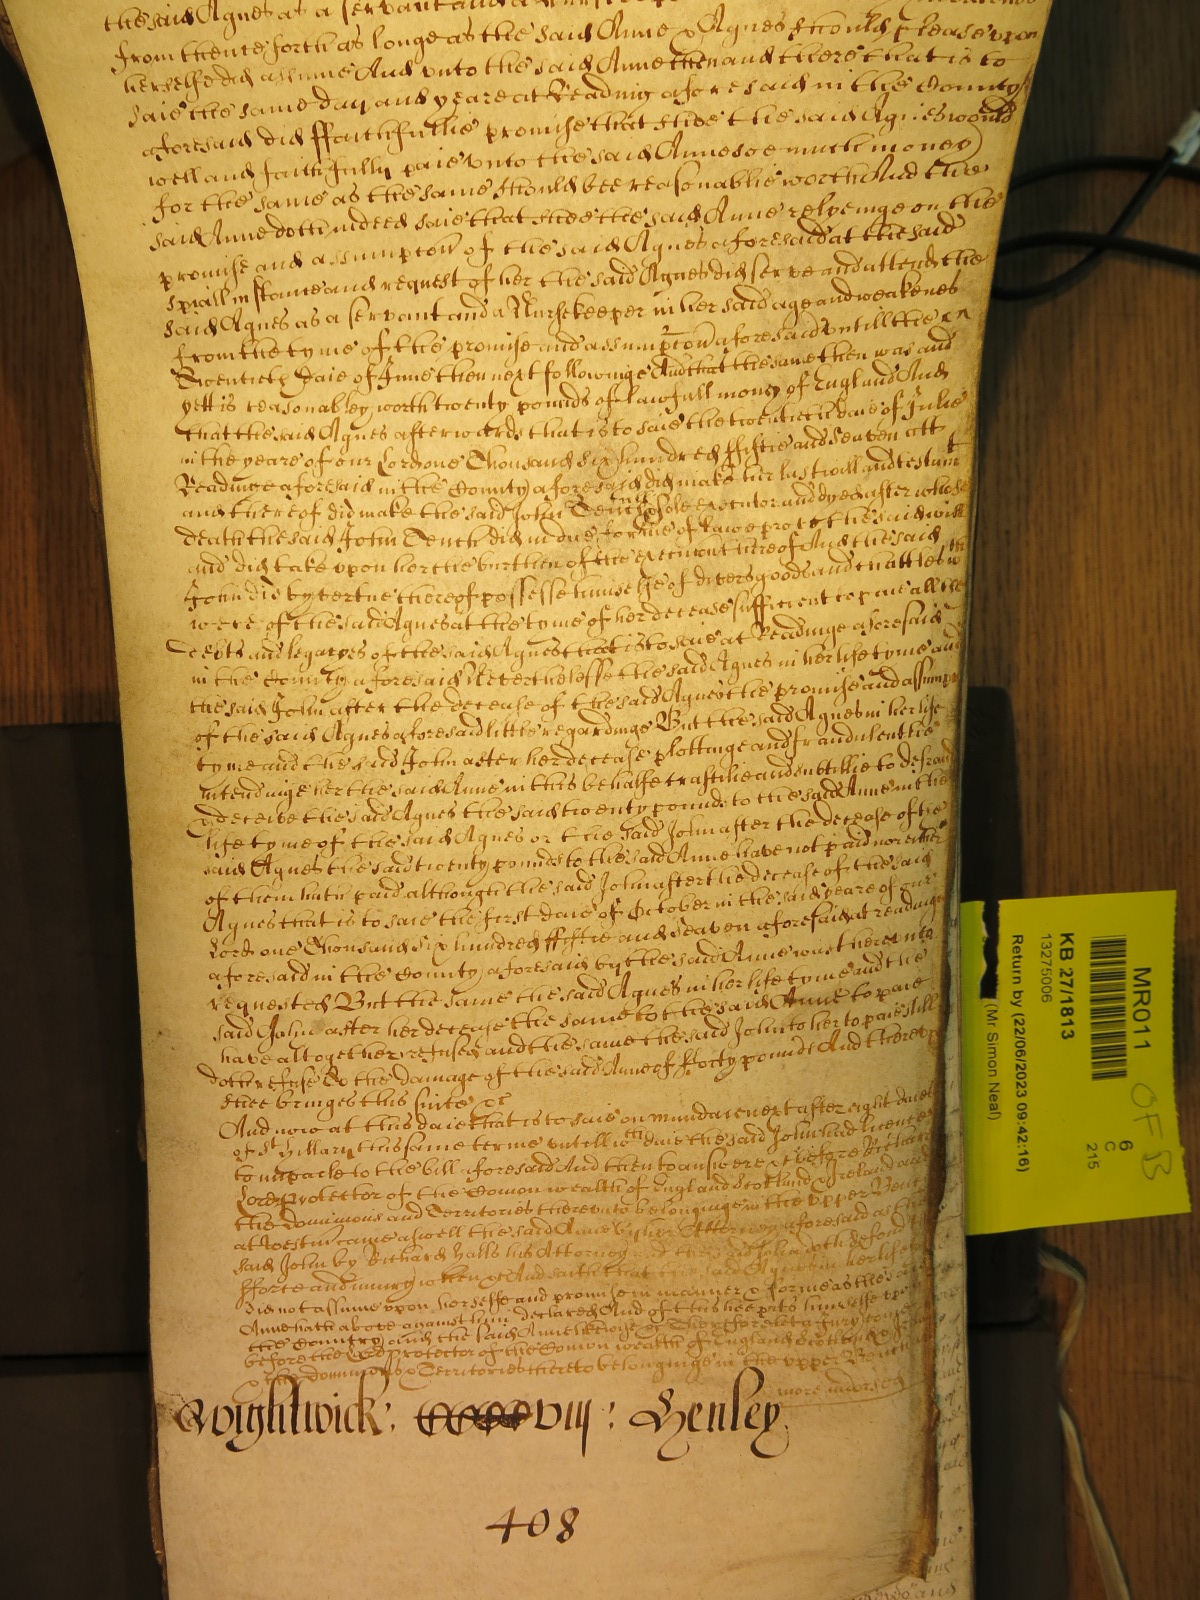 the said Agnes as a servant and a
from thence forth as longe as the said Anne & Agnes should please upon
herselfe did assume And unto the said Anne then and there that is to
saie the same day and yeare at Reading aforesaid in the County
aforesaid did ffaithfullie promise that shee the said Agnes would
well and faithfully paie unto the said Anne soe much money
for the same as the same should bee reasonablie worth And the
said Anne doth indeed saie that shee the said Anne relyeinge on the
promise and assumpcon of the said Agnes aforesaid at the said
spiall instance and request of her the said Agnes did serve and attend the
said Agnes as a servant and a Nursekeeper in her said age and weakenes
from the tyme of the promise and assumpcon aforesaid untill the
Twentieth daie of June then next followinge And that the same then was and
yett is reasonabley worth twenty pounds of lawfull money of England And
that the said Agnes afterwards that is to saie the twentieth daie of Julie
in the yeare of our Lord one Thousand six hundred ffiftie and seaven att
Readinge aforesaid in the County aforesaid did make her last will and testamt
and thereof did make the said John Tench sole executor and dyed after whose
death the said John Tench did in due forme of lawe prove the said will
and did take upon her the burthen of the execucon thereof And the said
John did by vertue thereof possesse himselfe of divers goods and chattles
were of the said Agnes at the tyme of her decease sufficient to paie all the
debts and legacyes of the said Agnes that is to saie at Readinge aforesaid
in the County aforesaid Neverthelesse the said Agnes in her life tyme and
the said John after the decease of the said Agnes the promise and assumpcon
of the said Agnes aforesaid little regardinge But the said Agnes in her life
tyme and the said John after her decease plottinge and fraudulentlie
intendinge her the said Anne in this behalfe craftilie and subtillie to defraud
& deceive the said Agnes the said twenty pounds to the said Anne in the
life tyme of the said Agnes or the said John after the decease of the
said Agnes the said twenty pounds to the said Anne have not paid nor either
of them hath paid although the said John after the decease of the said
Agnes that is to saie the first daie of October in the said yeare of our
Lord one Thousand six hundred ffiftie and seaven aforesaid at readinge
aforesaid in the County aforesaid by the said Anne was thereunto
requested But the same the said Agnes in her life tyme and the
said John after her decease the same to the said Anne to paie
have altogether refused and the same the said John to her to paie still
doth refuse To the damage of the said Anne of fforty pounds And thereupon
shee bringes this suite &c
And now at this daie that is to saie on mundaie next after eight daies
of St Hillary this same terme untill wch daie the said John had licence
to imparle to the bill aforesaid And then to answere &c before Richard
Lord Protector of the Comon wealth of England Scotland & Ireland and
the dominions and Territories thereunto belonginge in the upper Bench
at Westm came aswell the said Anne by her Attorney aforesaid as the
said John by Richard Halls his Attorney and the said John doth defend the
fforce and iniury when &c And saith that the said Agnes in her life
did not assume upon herselfe and promise in manner & forme as the said
Anne hath above against him declared And of this hee putts himselfe upon
the Country and the said Anne likewise &c Therefore let a Jury come
before the Lord protector of the Comon wealth of England Scotland & Ireland
& the dominions & Territories thereto belonginge in the upper Bench
more indorsed
Wightwick: viij: Henley
408
MR011
KB 27/1813
13275006
Return by (22/06/2023 09:42:16)
(Mr Simon Neal)
6
C
215
OF B